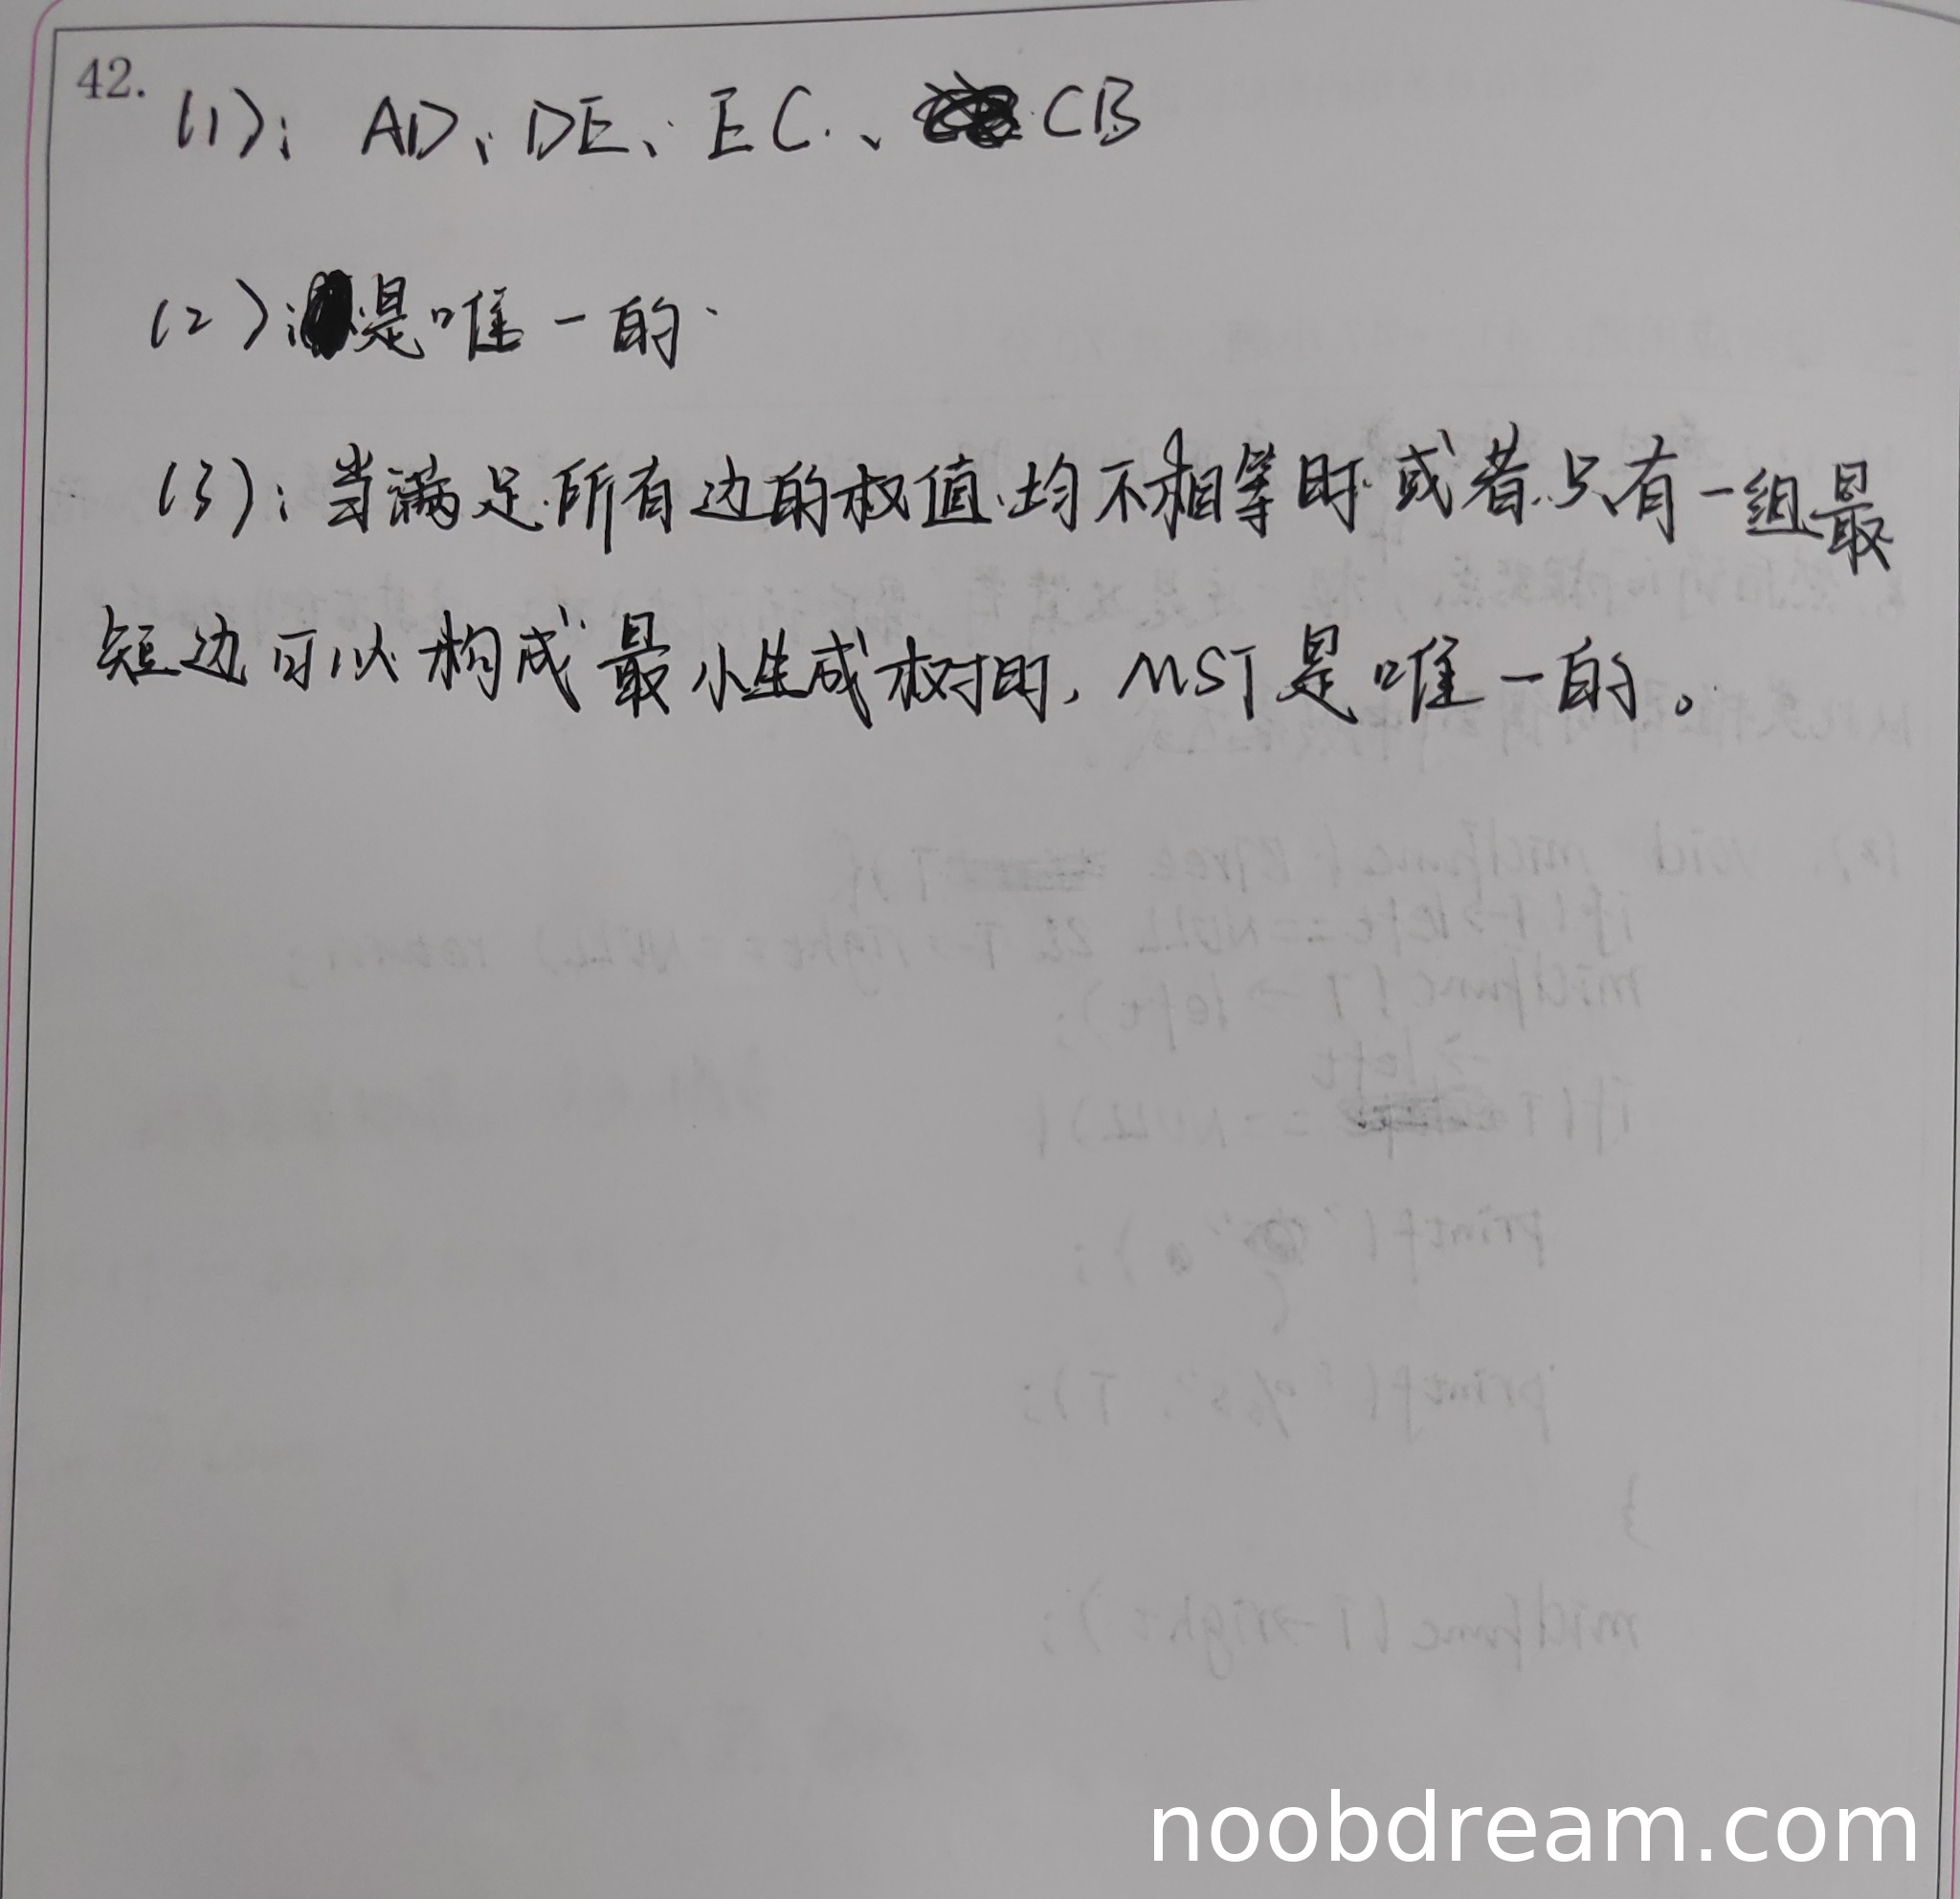 42.
(1): AD、DE、EC、CB
(2): 是唯一的.
(3): 当满足所有边的权值均不相等时或者只有一组最
短边可以构成最小生成树时, MST是唯一的。
noobdream.com